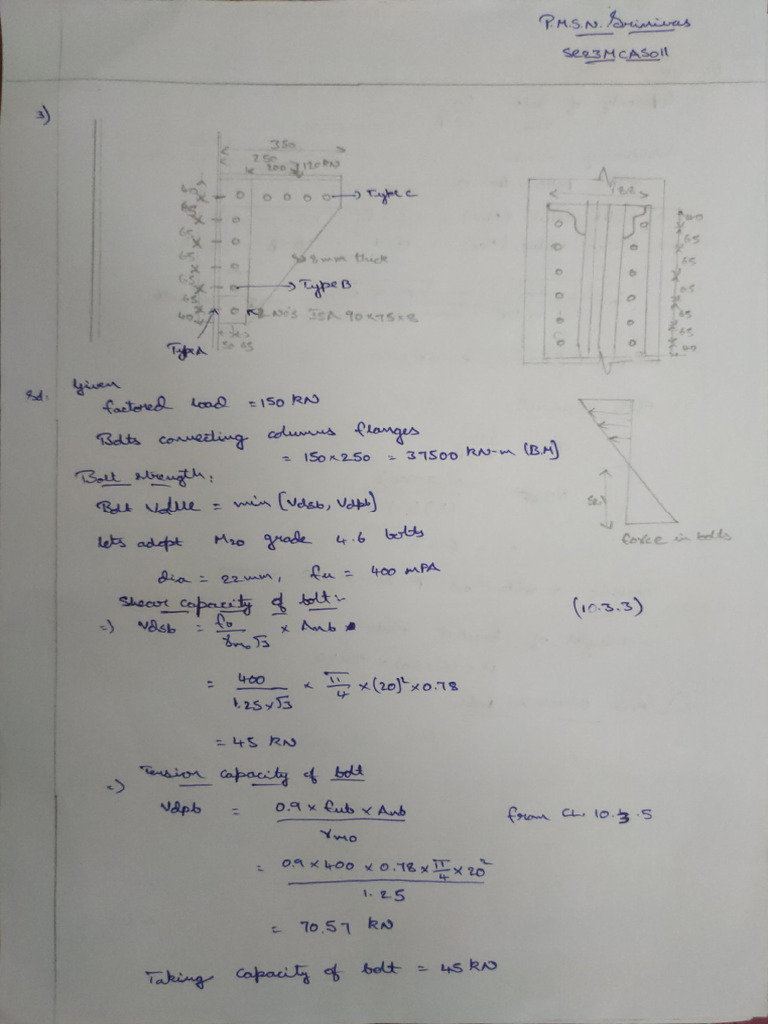 P.M.S.N. Srinivas
SE23MCAS011
3)
350
250
200
120 KN
Type C
8mm thick
Type B
2 No's ISA 90x75x8
Type A
50 45
182
60
65
65
65
65
65
60
Sol. Given
factored load = 150 KN
Bolts connecting columns flanges
= 150x250 = 37500 KN-m (B.M)
Bolt strength:
Bolt Value = min [Vdsb, Vdpb]
lets adopt M20 grade 4.6 bolts
force in bolts
dia = 22mm, fu = 400 MPA
Shear capacity of bolt:- (10.3.3)
=) Vdsb = fb / γmo √3 x Anb
= 400 / 1.25x√3 x π/4 x (20)² x 0.78
= 45 KN
=) Tension capacity of bolt
Vdpb = 0.9 x fub x Anb / γmo from CL. 10.3.5
= 0.9 x 400 x 0.78 x π/4 x 20² / 1.25
= 70.57 KN
Taking capacity of bolt = 45 KN